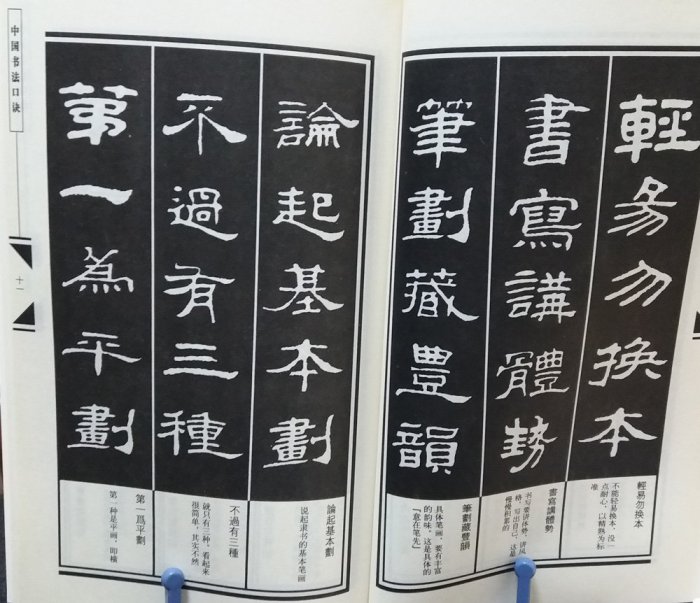 輕易勿換本
書寫講體勢
筆劃藏豊韻
論起基本劃
不過有三種
第一為平劃
輕易勿换本
不能轻易换本，没一
点耐心，以精熟为标
准
書寫講體勢
书写要讲体势，讲风
格，写出自己，这是
慢慢积累的
筆劃藏豐韻
具体笔画，要有丰富
的韵味，这是具体的
「意在笔先」
論起基本劃
说起隶书的基本笔画
不過有三種
就只有三种，看起来
很简单，其实不然
第一爲平劃
第一种是平画，即横
中国书法口诀
十一